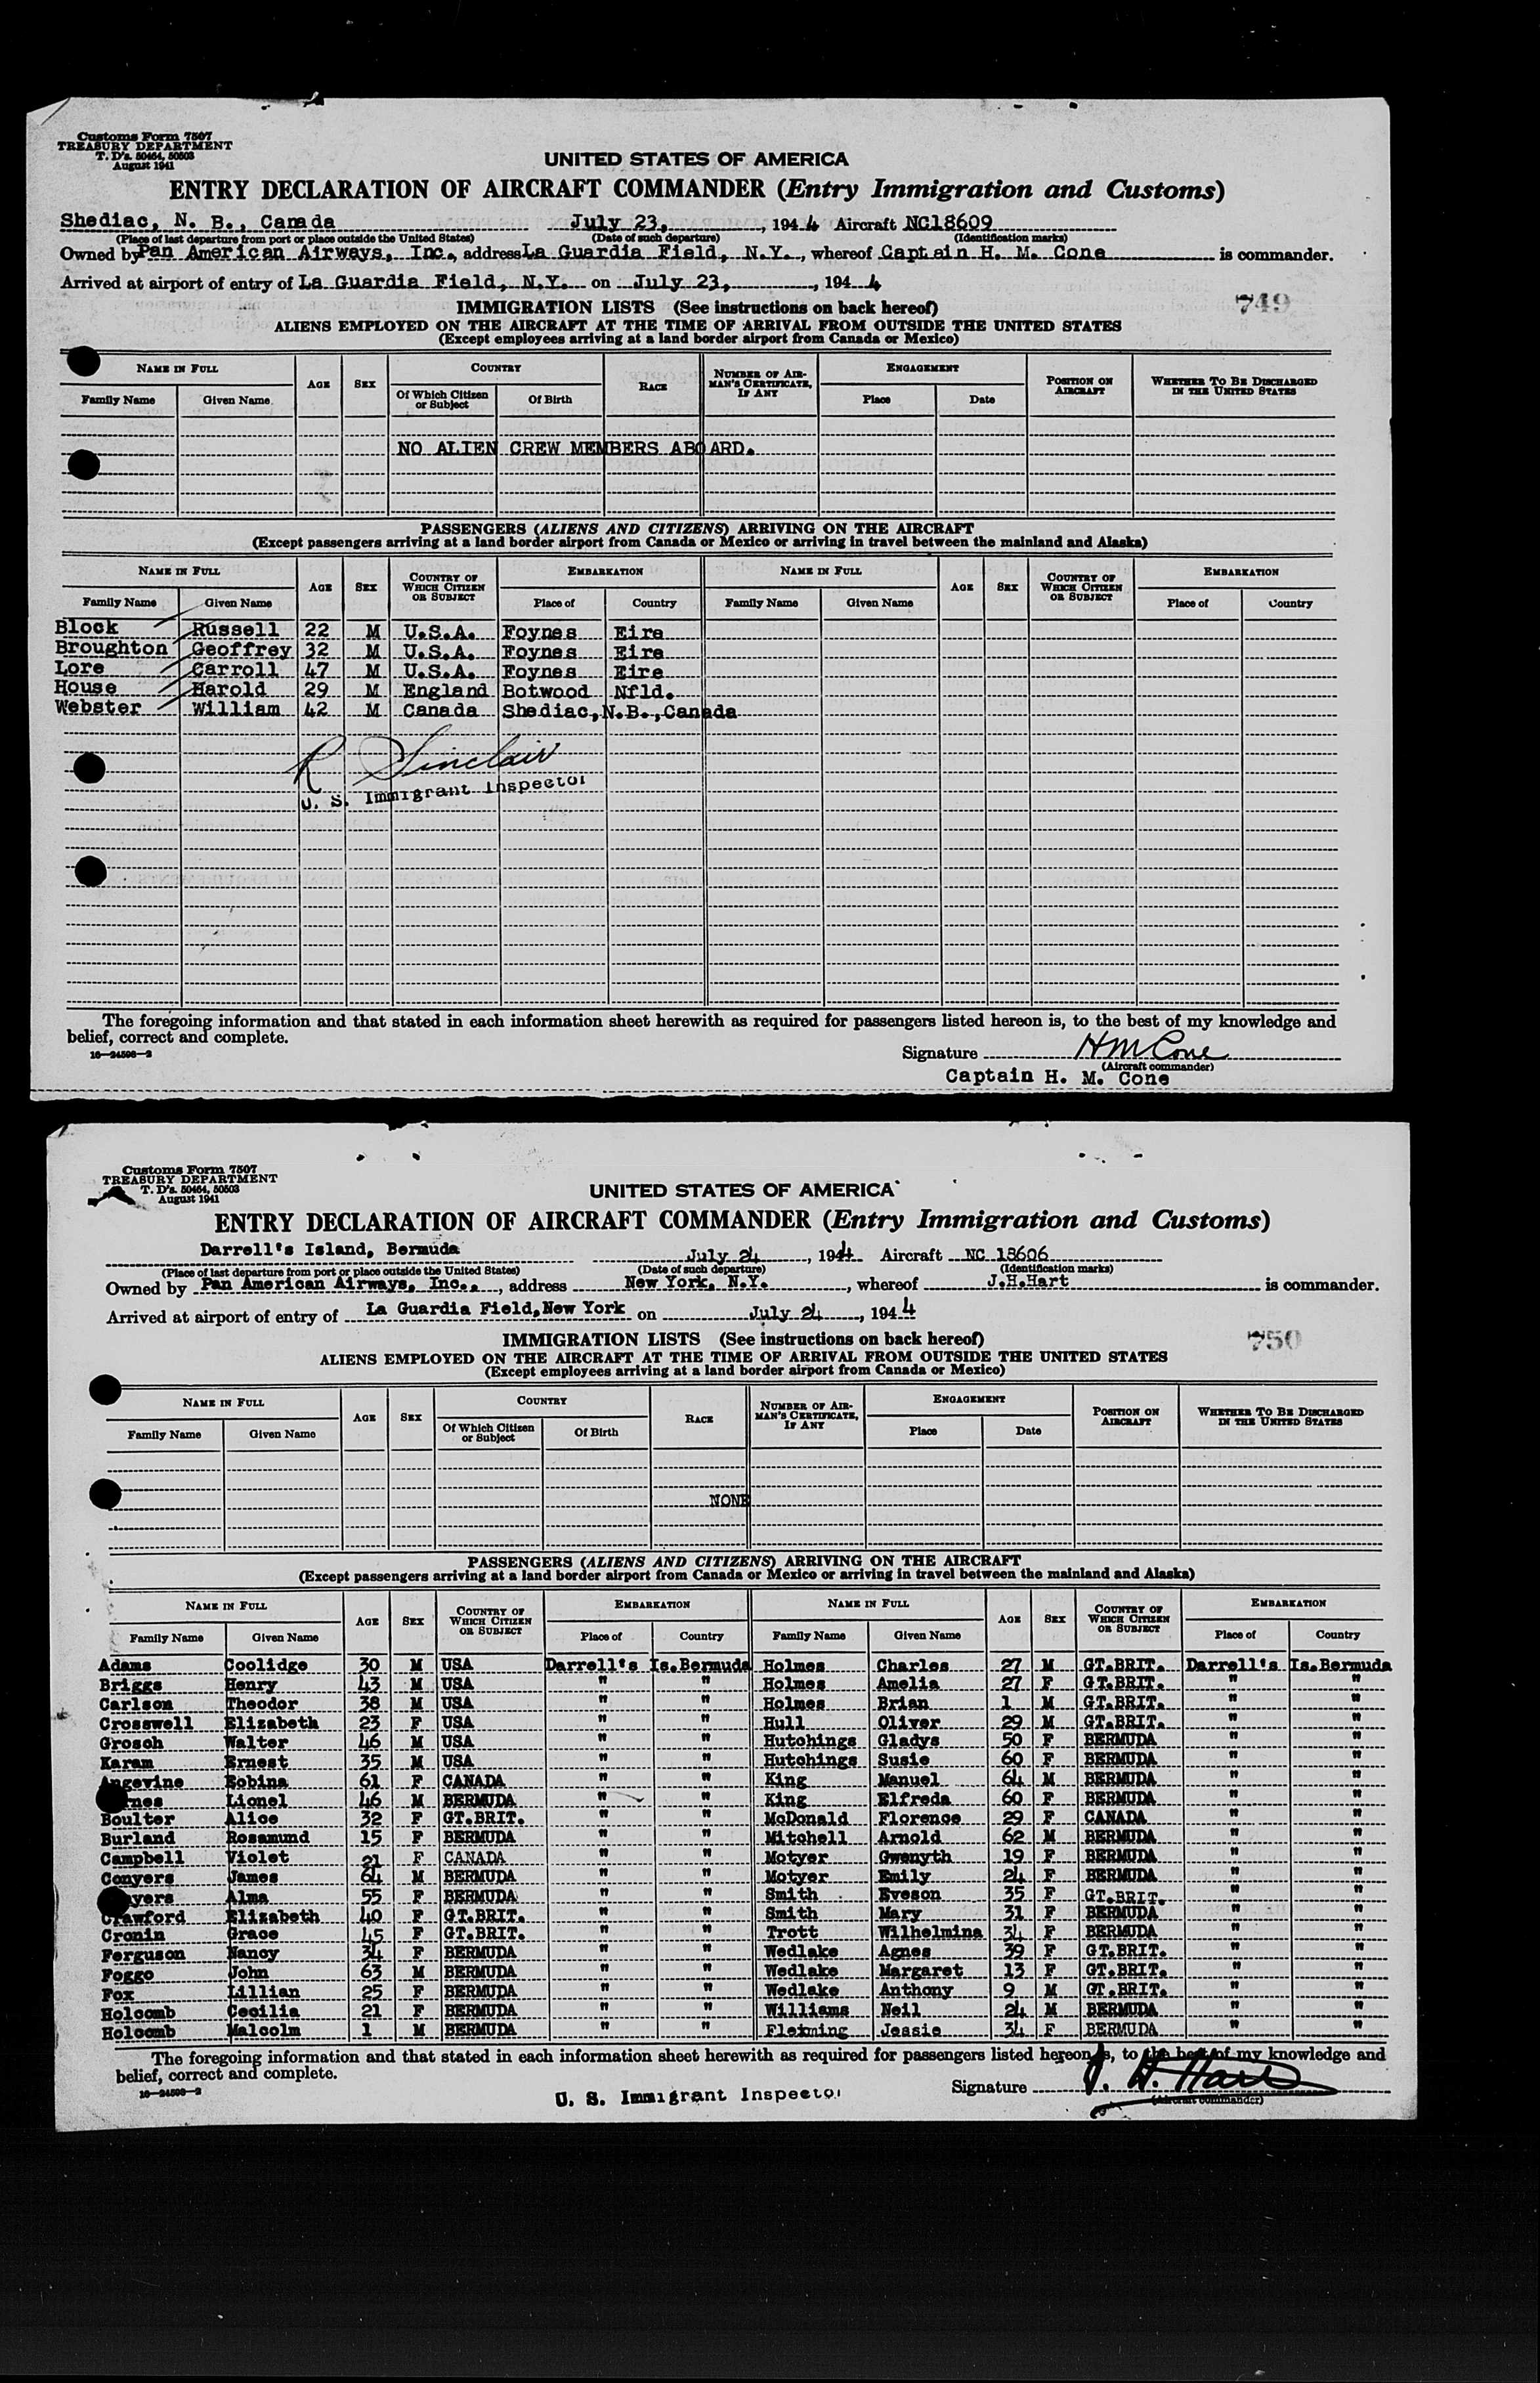 Customs Form 7507
TREASURY DEPARTMENT
T. D's. 50464, 50503
August 1941
UNITED STATES OF AMERICA
ENTRY DECLARATION OF AIRCRAFT COMMANDER (Entry Immigration and Customs)
Shediac, N. B., Canada July 23, 1944 Aircraft NC18609
(Place of last departure from port or place outside the United States) (Date of such departure) (Identification marks)
Owned by Pan American Airways, Inc., address La Guardia Field, N.Y., whereof Captain H. M. Cone is commander.
Arrived at airport of entry of La Guardia Field, N.Y. on July 23, 1944
749
IMMIGRATION LISTS (See instructions on back hereof)
ALIENS EMPLOYED ON THE AIRCRAFT AT THE TIME OF ARRIVAL FROM OUTSIDE THE UNITED STATES
(Except employees arriving at a land border airport from Canada or Mexico)
NAME IN FULL AGE SEX COUNTRY RACE NUMBER OF AIRMAN'S CERTIFICATE, IF ANY ENGAGEMENT POSITION ON AIRCRAFT WHETHER TO BE DISCHARGED IN THE UNITED STATES
Family Name Given Name Of Which Citizen or Subject Of Birth Place Date
NO ALIEN CREW MEMBERS ABOARD.
PASSENGERS (ALIENS AND CITIZENS) ARRIVING ON THE AIRCRAFT
(Except passengers arriving at a land border airport from Canada or Mexico or arriving in travel between the mainland and Alaska)
NAME IN FULL AGE SEX COUNTRY OF WHICH CITIZEN OR SUBJECT EMBARKATION NAME IN FULL AGE SEX COUNTRY OF WHICH CITIZEN OR SUBJECT EMBARKATION
Family Name Given Name Place of Country Family Name Given Name Place of Country
Block Russell 22 M U.S.A. Foynes Eire
Broughton Geoffrey 32 M U.S.A. Foynes Eire
Lore Carroll 47 M U.S.A. Foynes Eire
House Harold 29 M England Botwood Nfld.
Webster William 42 M Canada Shediac, N.B., Canada
R Sinclair
U. S. Immigrant Inspector
The foregoing information and that stated in each information sheet herewith as required for passengers listed hereon is, to the best of my knowledge and
belief, correct and complete.
16—24598—2
Signature H M Cone
(Aircraft commander)
Captain H. M. Cone
Customs Form 7507
TREASURY DEPARTMENT
T. D's. 50464, 50503
August 1941
UNITED STATES OF AMERICA
ENTRY DECLARATION OF AIRCRAFT COMMANDER (Entry Immigration and Customs)
Darrell's Island, Bermuda July 24, 1944 Aircraft NC 18606
(Place of last departure from port or place outside the United States) (Date of such departure) (Identification marks)
Owned by Pan American Airways, Inc., address New York, N.Y., whereof J.H.Hart is commander.
Arrived at airport of entry of La Guardia Field, New York on July 24, 1944
750
IMMIGRATION LISTS (See instructions on back hereof)
ALIENS EMPLOYED ON THE AIRCRAFT AT THE TIME OF ARRIVAL FROM OUTSIDE THE UNITED STATES
(Except employees arriving at a land border airport from Canada or Mexico)
NAME IN FULL AGE SEX COUNTRY RACE NUMBER OF AIRMAN'S CERTIFICATE, IF ANY ENGAGEMENT POSITION ON AIRCRAFT WHETHER TO BE DISCHARGED IN THE UNITED STATES
Family Name Given Name Of Which Citizen or Subject Of Birth Place Date
NONE
PASSENGERS (ALIENS AND CITIZENS) ARRIVING ON THE AIRCRAFT
(Except passengers arriving at a land border airport from Canada or Mexico or arriving in travel between the mainland and Alaska)
NAME IN FULL AGE SEX COUNTRY OF WHICH CITIZEN OR SUBJECT EMBARKATION NAME IN FULL AGE SEX COUNTRY OF WHICH CITIZEN OR SUBJECT EMBARKATION
Family Name Given Name Place of Country Family Name Given Name Place of Country
Adams Coolidge 30 M USA Darrell's Is. Bermuda Holmes Charles 27 M GT.BRIT. Darrell's Is. Bermuda
Briggs Henry 43 M USA " " Holmes Amelia 27 F GT.BRIT. " "
Carlson Theodor 38 M USA " " Holmes Brian 1 M GT.BRIT. " "
Crosswell Elizabeth 23 F USA " " Hull Oliver 29 M GT.BRIT. " "
Grosch Walter 46 M USA " " Hutchings Gladys 50 F BERMUDA " "
Karam Ernest 35 M USA " " Hutchings Susie 60 F BERMUDA " "
Angevine Robina 61 F CANADA " " King Manuel 64 M BERMUDA " "
Lionel 46 M BERMUDA " " King Elfreda 60 F BERMUDA " "
Boulter Alice 32 F GT.BRIT. " " McDonald Florence 29 F CANADA " "
Burland Rosamund 15 F BERMUDA " " Mitchell Arnold 62 M BERMUDA " "
Campbell Violet 21 F CANADA " " Motyer Gwenyth 19 F BERMUDA " "
Conyers James 64 M BERMUDA " " Motyer Emily 24 F BERMUDA " "
yers Alma 55 F BERMUDA " " Smith Eveson 35 F GT.BRIT. " "
Crawford Elizabeth 40 F GT.BRIT. " " Smith Mary 31 F BERMUDA " "
Cronin Grace 45 F GT.BRIT. " " Trott Wilhelmina 34 F BERMUDA " "
Ferguson Nancy 34 F BERMUDA " " Wedlake Agnes 39 F GT.BRIT. " "
Foggo John 63 M BERMUDA " " Wedlake Margaret 13 F GT.BRIT. " "
Fox Lillian 25 F BERMUDA " " Wedlake Anthony 9 M GT.BRIT. " "
Holcomb Cecilia 21 F BERMUDA " " Williams Neil 24 M BERMUDA " "
Holcomb Malcolm 1 M BERMUDA " " Fleming Jessie 34 F BERMUDA " "
The foregoing information and that stated in each information sheet herewith as required for passengers listed hereon is, to the best of my knowledge and
belief, correct and complete.
16—24598—2
U. S. Immigrant Inspector
Signature J. H. Hart
(Aircraft commander)